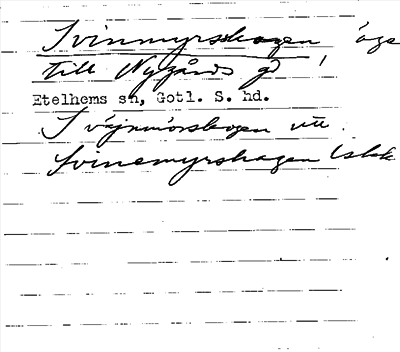 Svinmyrskogen äga
till Nygårds gd
Etelhems sn, Gotl. S. hd.
Svajnmörskogen utt.
Svinemyrshagen